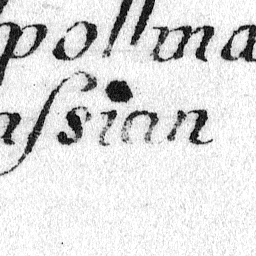 pollma
ſsian